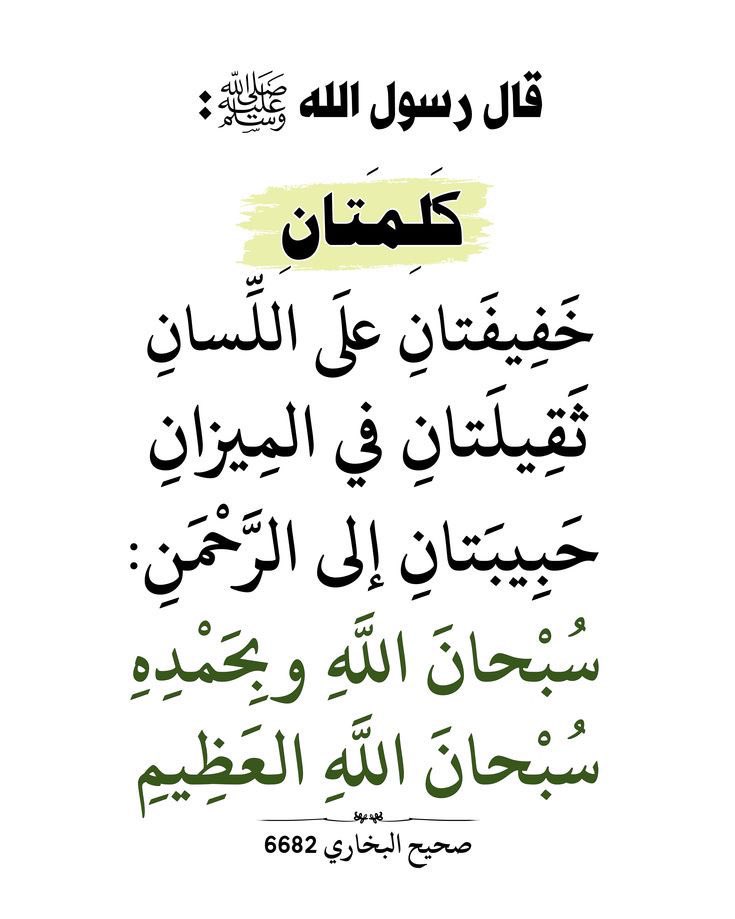 قال رسول الله ﷺ :
كَلِمَتانِ
خَفِيفَتانِ علَى اللِّسانِ
ثَقِيلَتانِ في المِيزانِ
حَبِيبَتانِ إلى الرَّحْمَنِ:
سُبْحانَ اللَّهِ وبِحَمْدِهِ
سُبْحانَ اللَّهِ العَظِيمِ
صحيح البخاري 6682